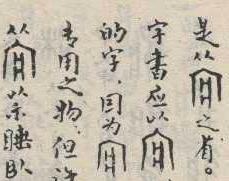 是从之省。
字书应以
的字，因为
专用之物，但
从以示睡卧